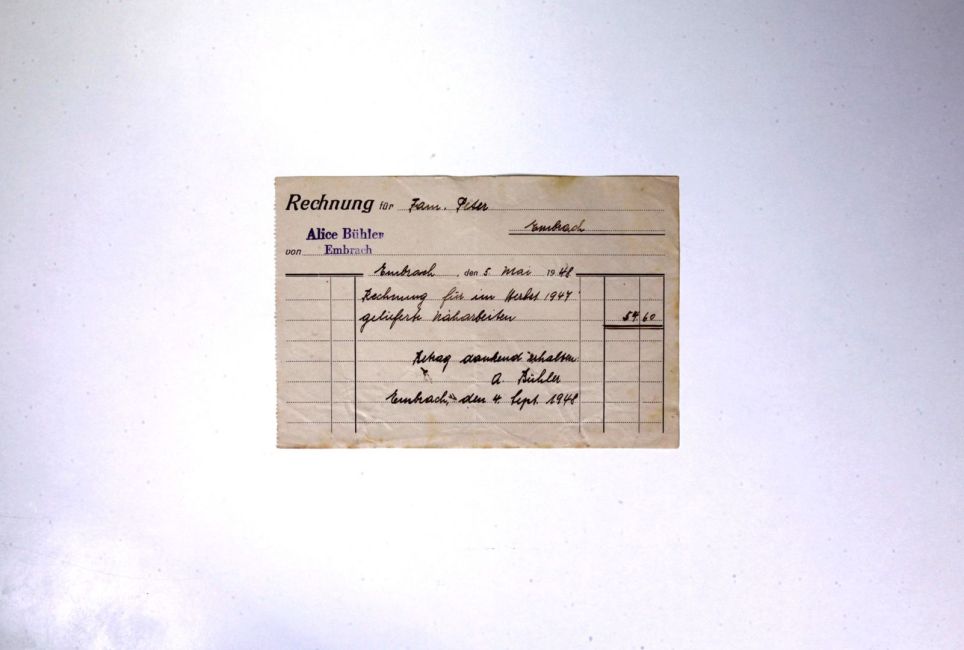 Rechnung für Fam. Peter
Embrach
Alice Bühler
von Embrach
Embrach, den 5. Mai 1948
Rechnung für im Herbst 1947
gelieferte Näharbeiten 54.60
Betrag dankend erhalten.
A. Bühler
Embrach, den 4. Sept. 1948